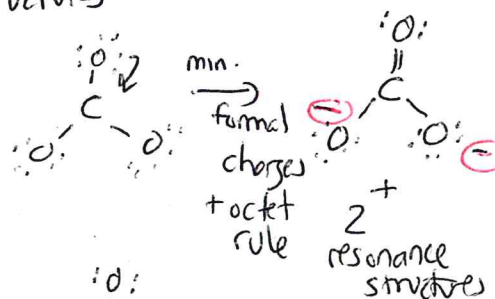 :O:
O
C
O
O
min.
formal
charges
+ octet
rule
:O:
C
O
O
−
−
2 +
resonance
structures
:O: